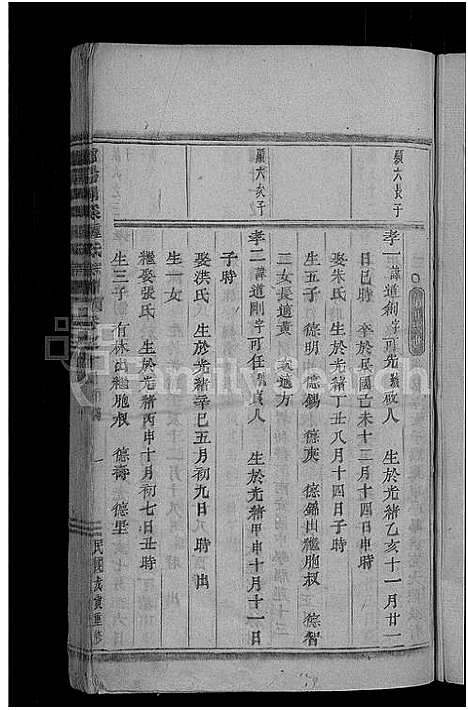 顯六長子
孝一諱道絢字可光號啟人 生於光緒乙亥十一月廿二
日巳時 卒於民國己未十二月十四日申時
娶朱氏 生於光緒丁丑八月十四日子時
生五子 德明 德錫 德庚 德鏞出繼胞叔 德智
二女長適黃 次適方
顯六次子
孝二諱道剛字可任號貞人 生於光緒甲申十月十一日
子時
娶洪氏 生於光緒辛巳五月初九日 時 出
生一女
繼娶張氏 生於光緒丙申十月初七日丑時
生三子 有林出繼胞叔 德壽 德堊
一
民國戊寅重修